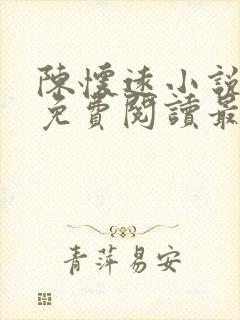 陳懷遠小說
免費閱讀最
青萍易安